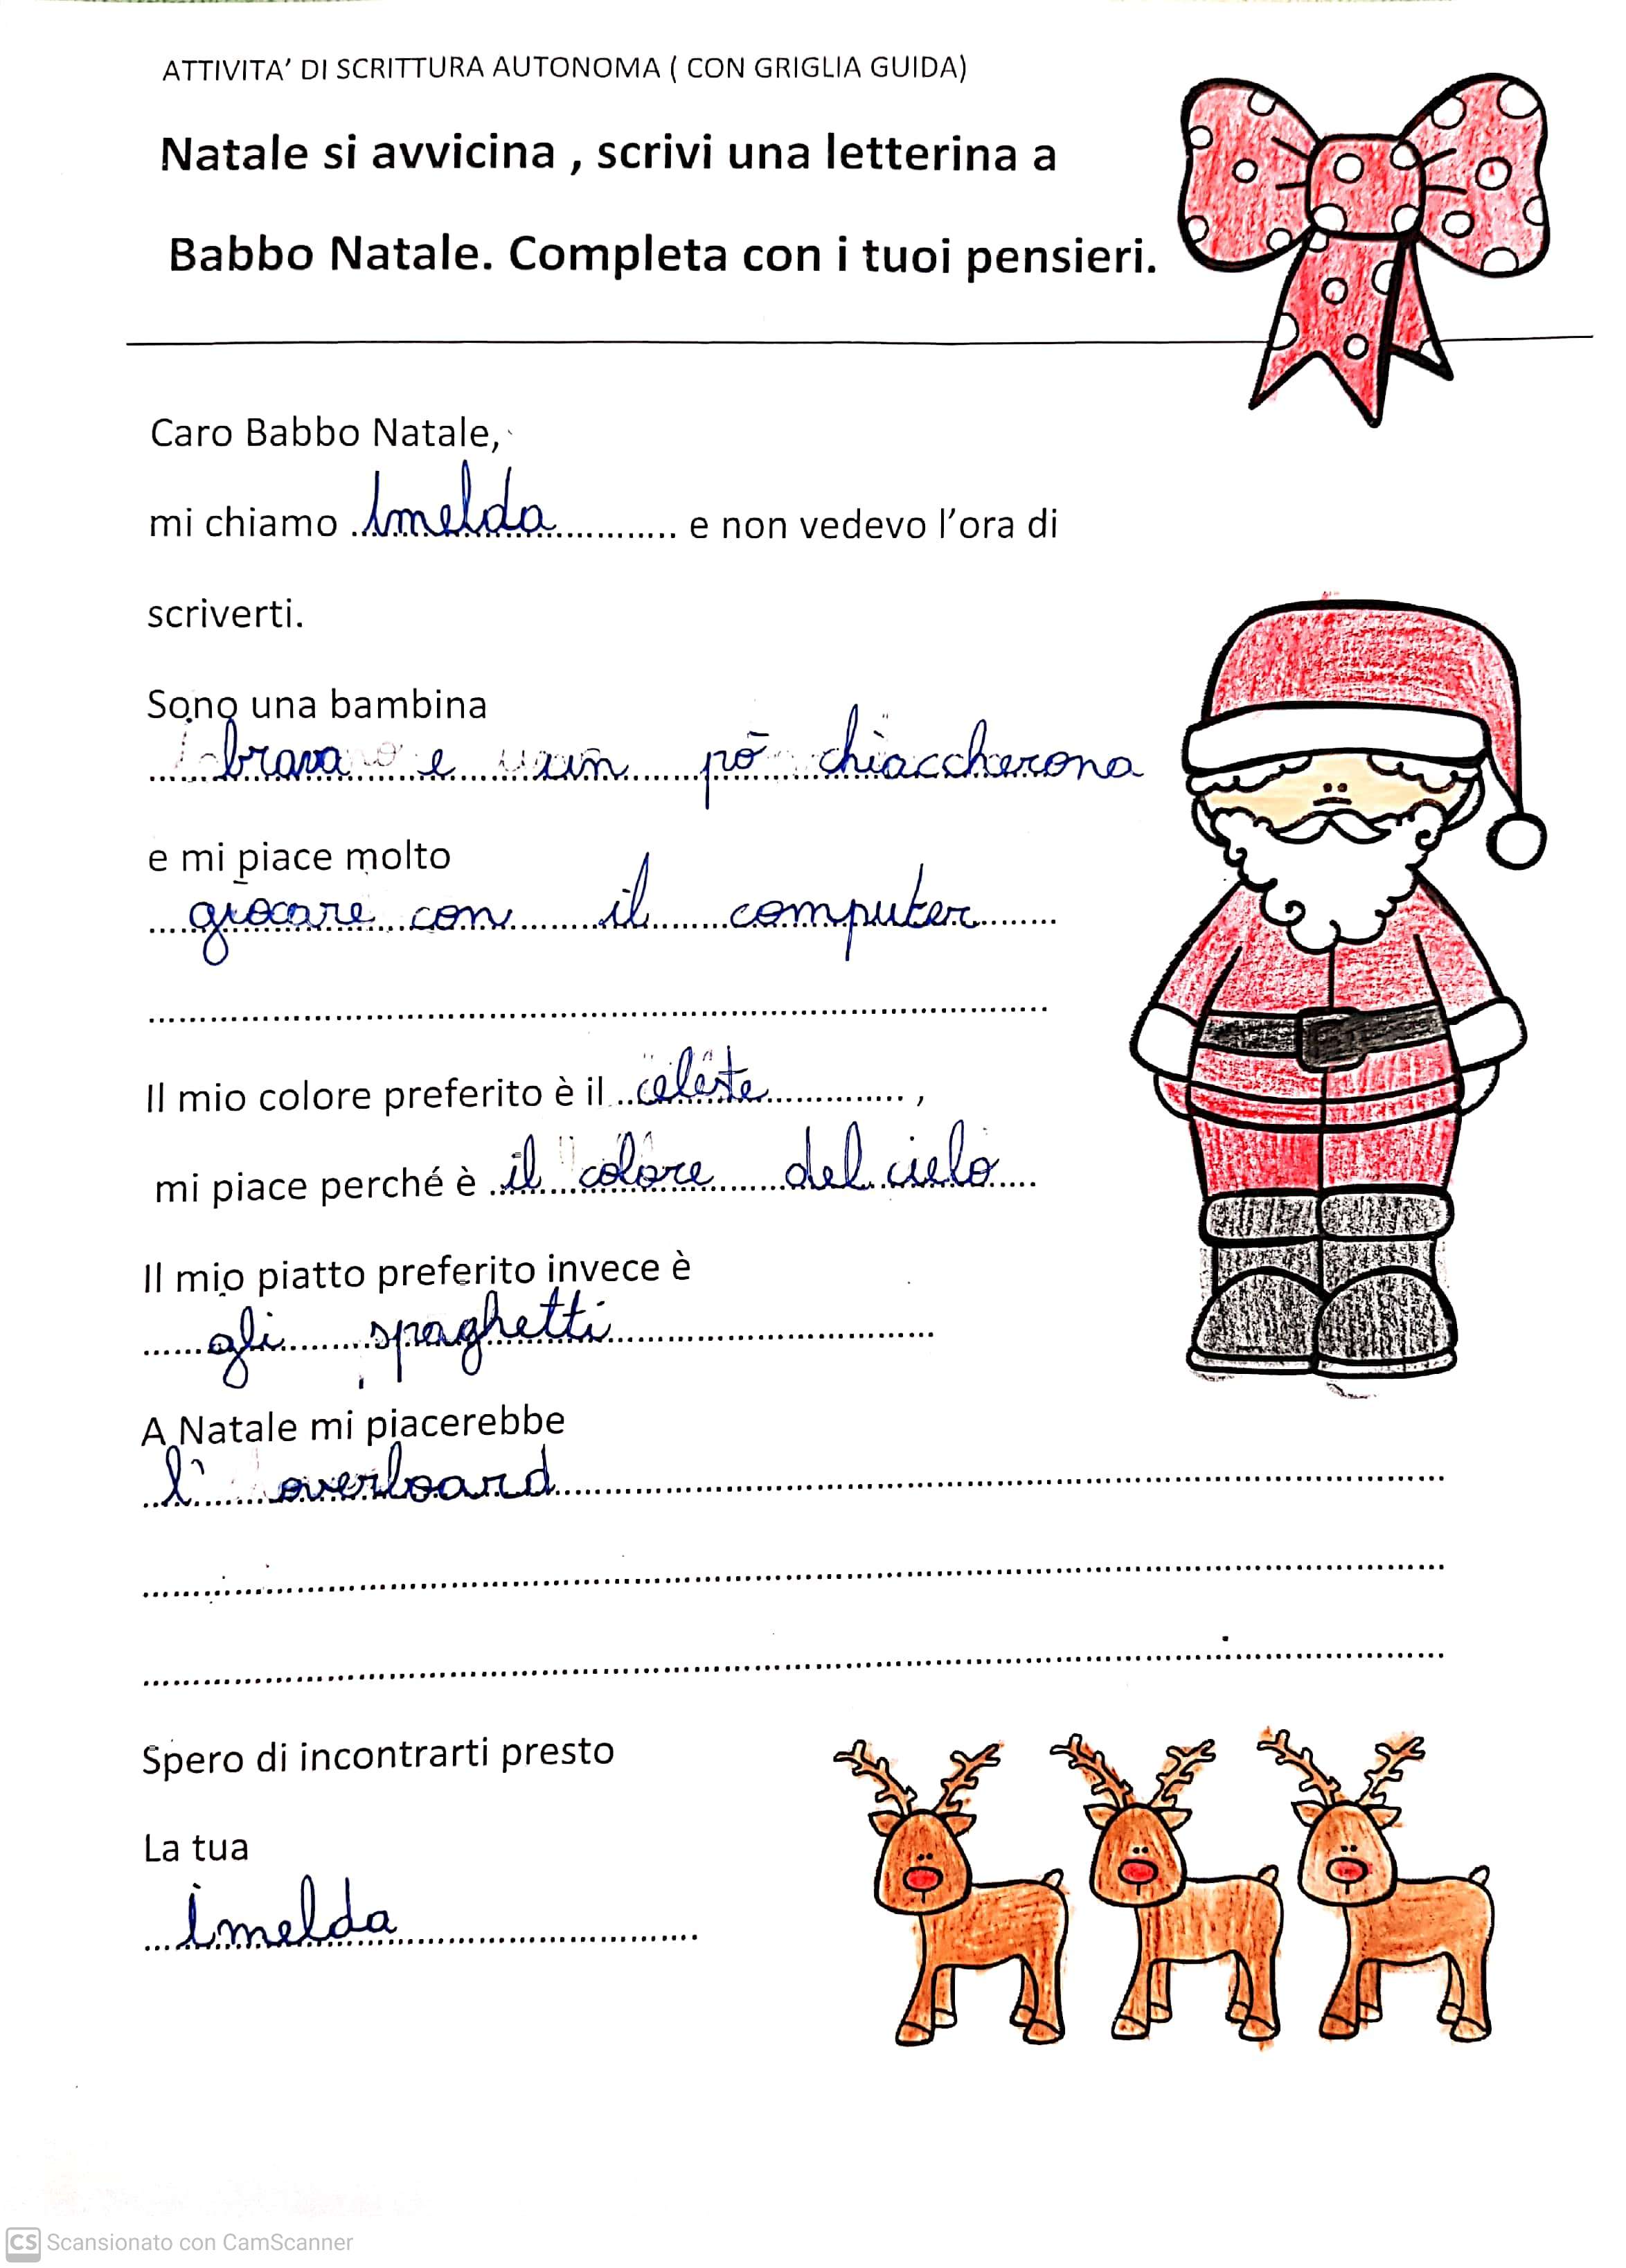 ATTIVITA' DI SCRITTURA AUTONOMA ( CON GRIGLIA GUIDA)
Natale si avvicina , scrivi una letterina a
Babbo Natale. Completa con i tuoi pensieri.
Caro Babbo Natale,
mi chiamo Imelda e non vedevo l'ora di
scriverti.
Sono una bambina
brava e un pò chiaccherona
e mi piace molto
giocare con il computer
Il mio colore preferito è il celeste ,
mi piace perché è il colore del cielo
Il mio piatto preferito invece è
gli spaghetti
A Natale mi piacerebbe
l' overboard
Spero di incontrarti presto
La tua
Imelda
CS Scansionato con CamScanner